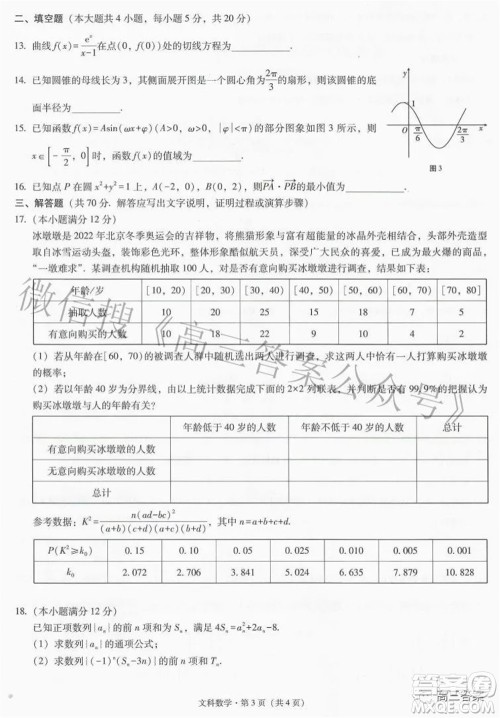 二、填空题（本大题共4小题，每小题5分，共20分）
13. 曲线f(x)=e^x/(x-1)在点(0, f(0))处的切线方程为________.
14. 已知圆锥的母线长为3，其侧面展开图是一个圆心角为2π/3的扇形，则该圆锥的底
面半径为________.
15. 已知函数f(x)=Asin(ωx+φ)(A>0, ω>0, |φ|<π/2)的部分图象如图3所示，则
当x∈[-π/2, 0]时，函数f(x)的值域为________.
y
1
O
π/6
2π/3
x
图3
16. 已知点P在圆x²+y²=1上，A(-2, 0)，B(0, 2)，则PA·PB的最小值为________.
三、解答题（共70分. 解答应写出文字说明，证明过程或演算步骤）
17.（本小题满分12分）
冰墩墩是2022年北京冬季奥运会的吉祥物，将熊猫形象与富有超能量的冰晶外壳相结合，头部外壳造型
取自冰雪运动头盔，装饰彩色光环，整体形象酷似航天员，深受广大民众的喜爱，已成为最火爆的商品，
“一墩难求”. 某调查机构随机抽取100人，对是否有意向购买冰墩墩进行调查，结果如下表：
年龄/岁 [10, 20) [20, 30) [30, 40) [40, 50) [50, 60) [60, 70) [70, 80]
抽取人数 10 20 25 15 18 7 5
有意向购买的人数 10 18 22 9 10 2 2
（1）若从年龄在[60, 70)的被调查人群中随机选出两人进行调查，求这两人中恰有一人打算购买冰墩墩
的概率；
（2）若以年龄40岁为分界线，由以上统计数据完成下面的2×2列联表，并判断是否有99.9%的把握认为
购买冰墩墩与人的年龄有关？
年龄低于40岁的人数 年龄不低于40岁的人数 总计
有意向购买冰墩墩的人数
无意向购买冰墩墩的人数
总计
参考数据：K²=n(ad-bc)²/((a+b)(c+d)(a+c)(b+d))，其中n=a+b+c+d.
P(K²≥k₀) 0.15 0.10 0.05 0.025 0.010 0.005 0.001
k₀ 2.072 2.706 3.841 5.024 6.635 7.879 10.828
18.（本小题满分12分）
已知正项数列{aₙ}的前n项和为Sₙ，满足4Sₙ=aₙ²+2aₙ-8.
（1）求数列{aₙ}的通项公式；
（2）求数列{(-1)ⁿ(Sₙ-3n)}的前n项和Tₙ.
文科数学·第3页（共4页）
微信搜《高三答案公众号》
高三答案